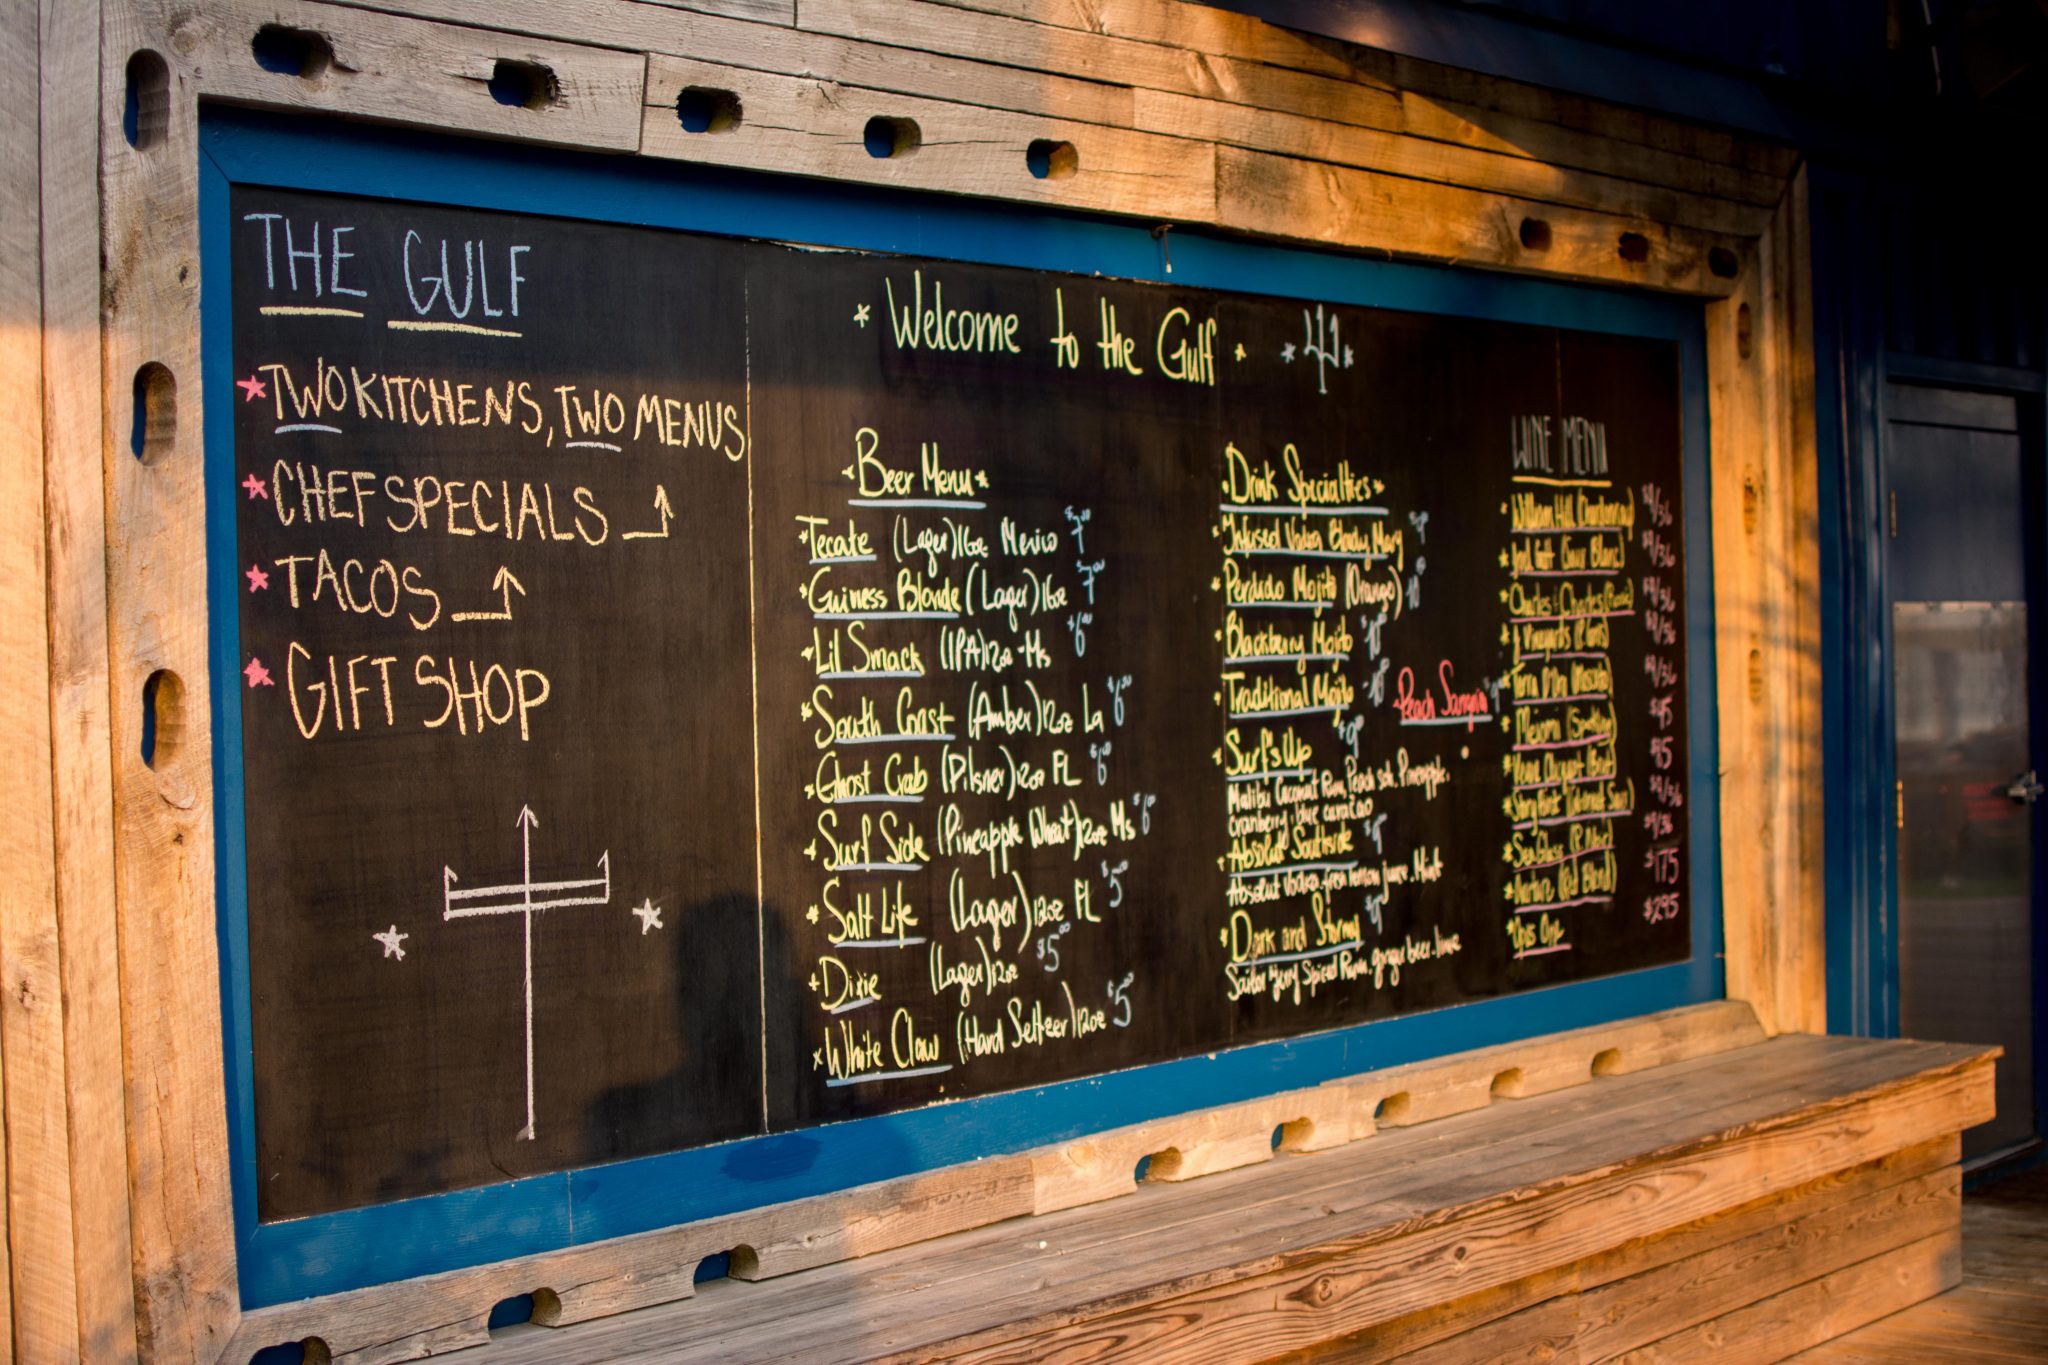 THE GULF
*TWO KITCHENS, TWO MENUS
*CHEF SPECIALS
*TACOS
*GIFT SHOP
* Welcome to the Gulf *
Beer Menu
*Tecate (Lager) 16oz Mexico $7.00
*Guiness Blonde (Lager) 16oz $7.00
*Lil Smack (IPA) 12oz - Ms $6.00
*South Coast (Amber) 12oz La $6.00
*Ghost Crab (Pilsner) 12oz FL $6.00
*Surf Side (Pineapple Wheat) 12oz Ms $6.00
*Salt Life (Lager) 12oz FL $5.00
*Dixie (Lager) 12oz $5.00
*White Claw (Hard Seltzer) 12oz $5.00
Drink Specialties
*Infused Vodka Bloody Mary $9
*Perdido Mojito (Orange) $10
*Blackberry Mojito $10
*Traditional Mojito $10
Peach Sangria $9
*Surf's Up $9
Malibu Coconut Rum, Peach sch. Pineapple.
Cranberry. blue curacao
*Absolut Southside $9
Absolut Vodka. fresh lemon juice. Mint
*Dark and Stormy $9
Sailor Jerry Spiced Rum. ginger beer. lime
WINE MENU
*William Hill (Chardonnay) $9/36
(Sauv Blanc) $9/36
*Charles & Charles $9/36
Vineyards $9/36
(Moscato) $9/36
*Meiomi (Sparkling) $45
(Brut) $95
$9/36
*Sea Glass (P. Noir) $9/36
(Red Blend) $175
*Opus One $295